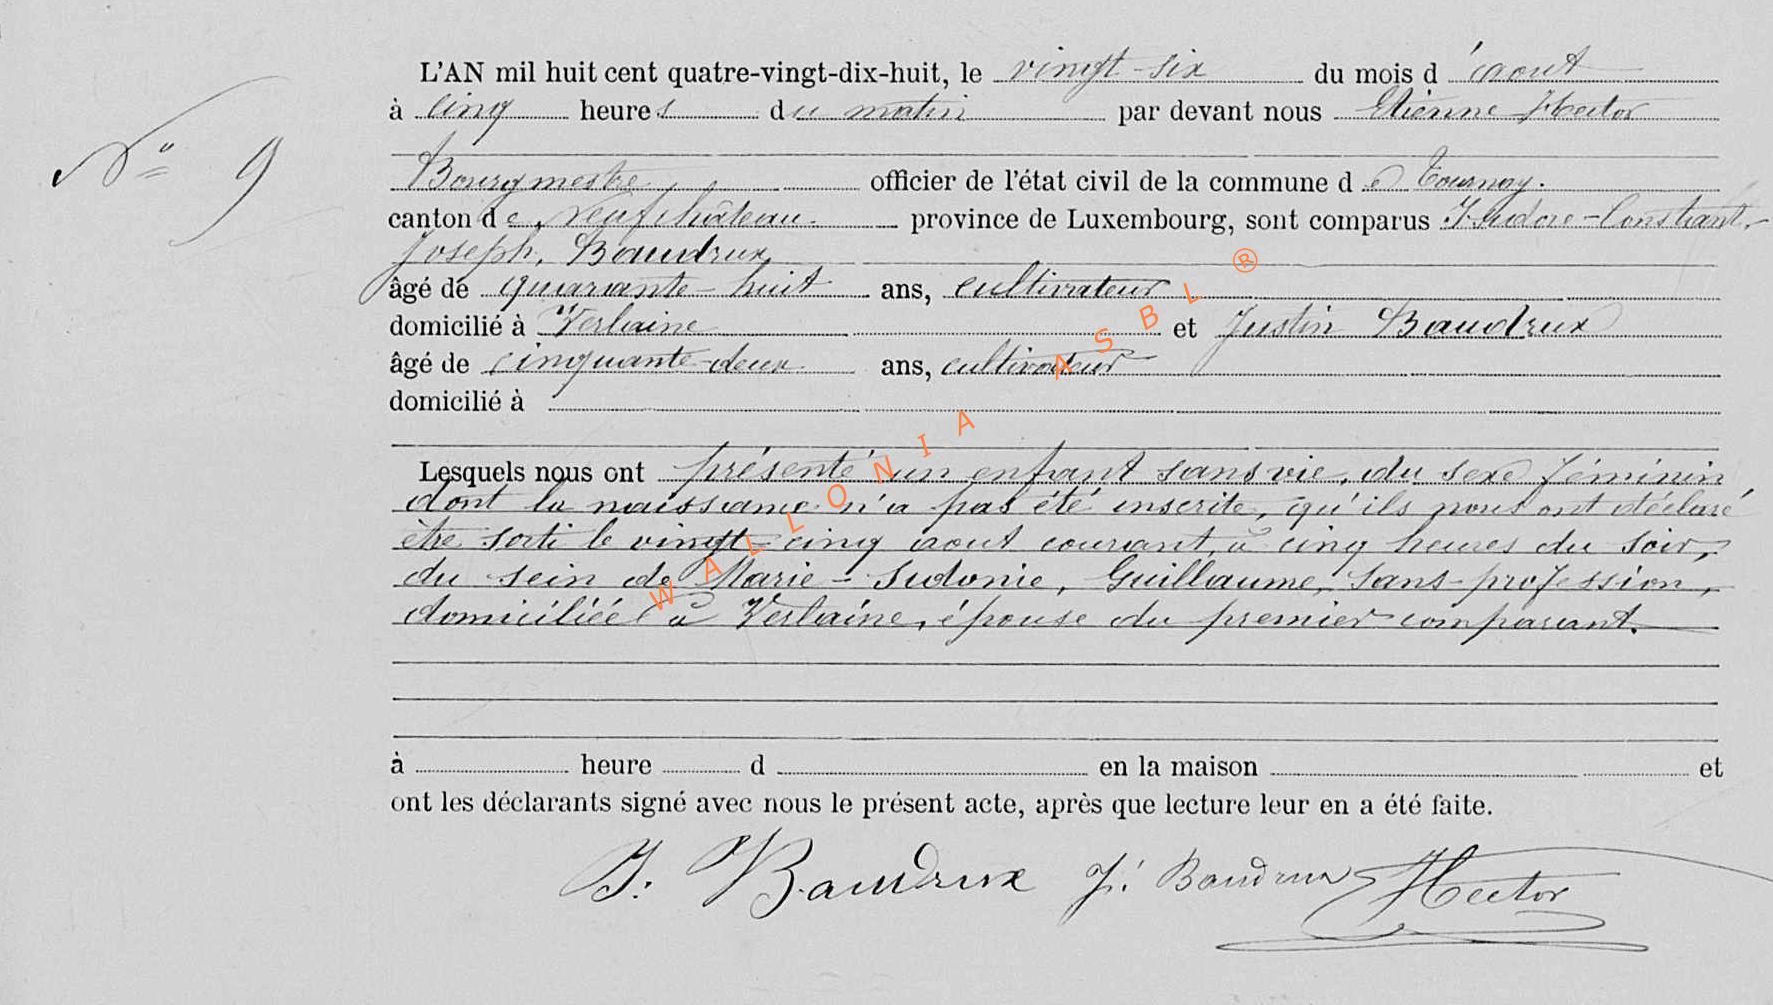 L'AN mil huit cent quatre-vingt-dix-huit, le vingt-six du mois d'août
à cinq heures du matin par devant nous Etienne Hector
N° 9
Bourgmestre officier de l'état civil de la commune de Tournay.
canton de Neufchâteau. province de Luxembourg, sont comparus Isidore-Constant-
Joseph, Baudrux
âgé de quarante-huit ans, cultivateur
domicilié à Verlaine et Justin Baudrux
âgé de cinquante-deux ans, cultivateur
domicilié à
Lesquels nous ont présenté un enfant sans vie, du sexe féminin
dont la naissance n'a pas été inscrite, qu'ils nous ont déclaré
être sorti le vingt-cinq aout courant, à cinq heures du soir,
du sein de Marie-Sidonie, Guillaume, sans-profession,
domiciliée à Verlaine, épouse du premier comparant.
à heure d en la maison et
ont les déclarants signé avec nous le présent acte, après que lecture leur en a été faite.
J. Baudrux J. Baudrux Hector
WALLONIA ASBL ®